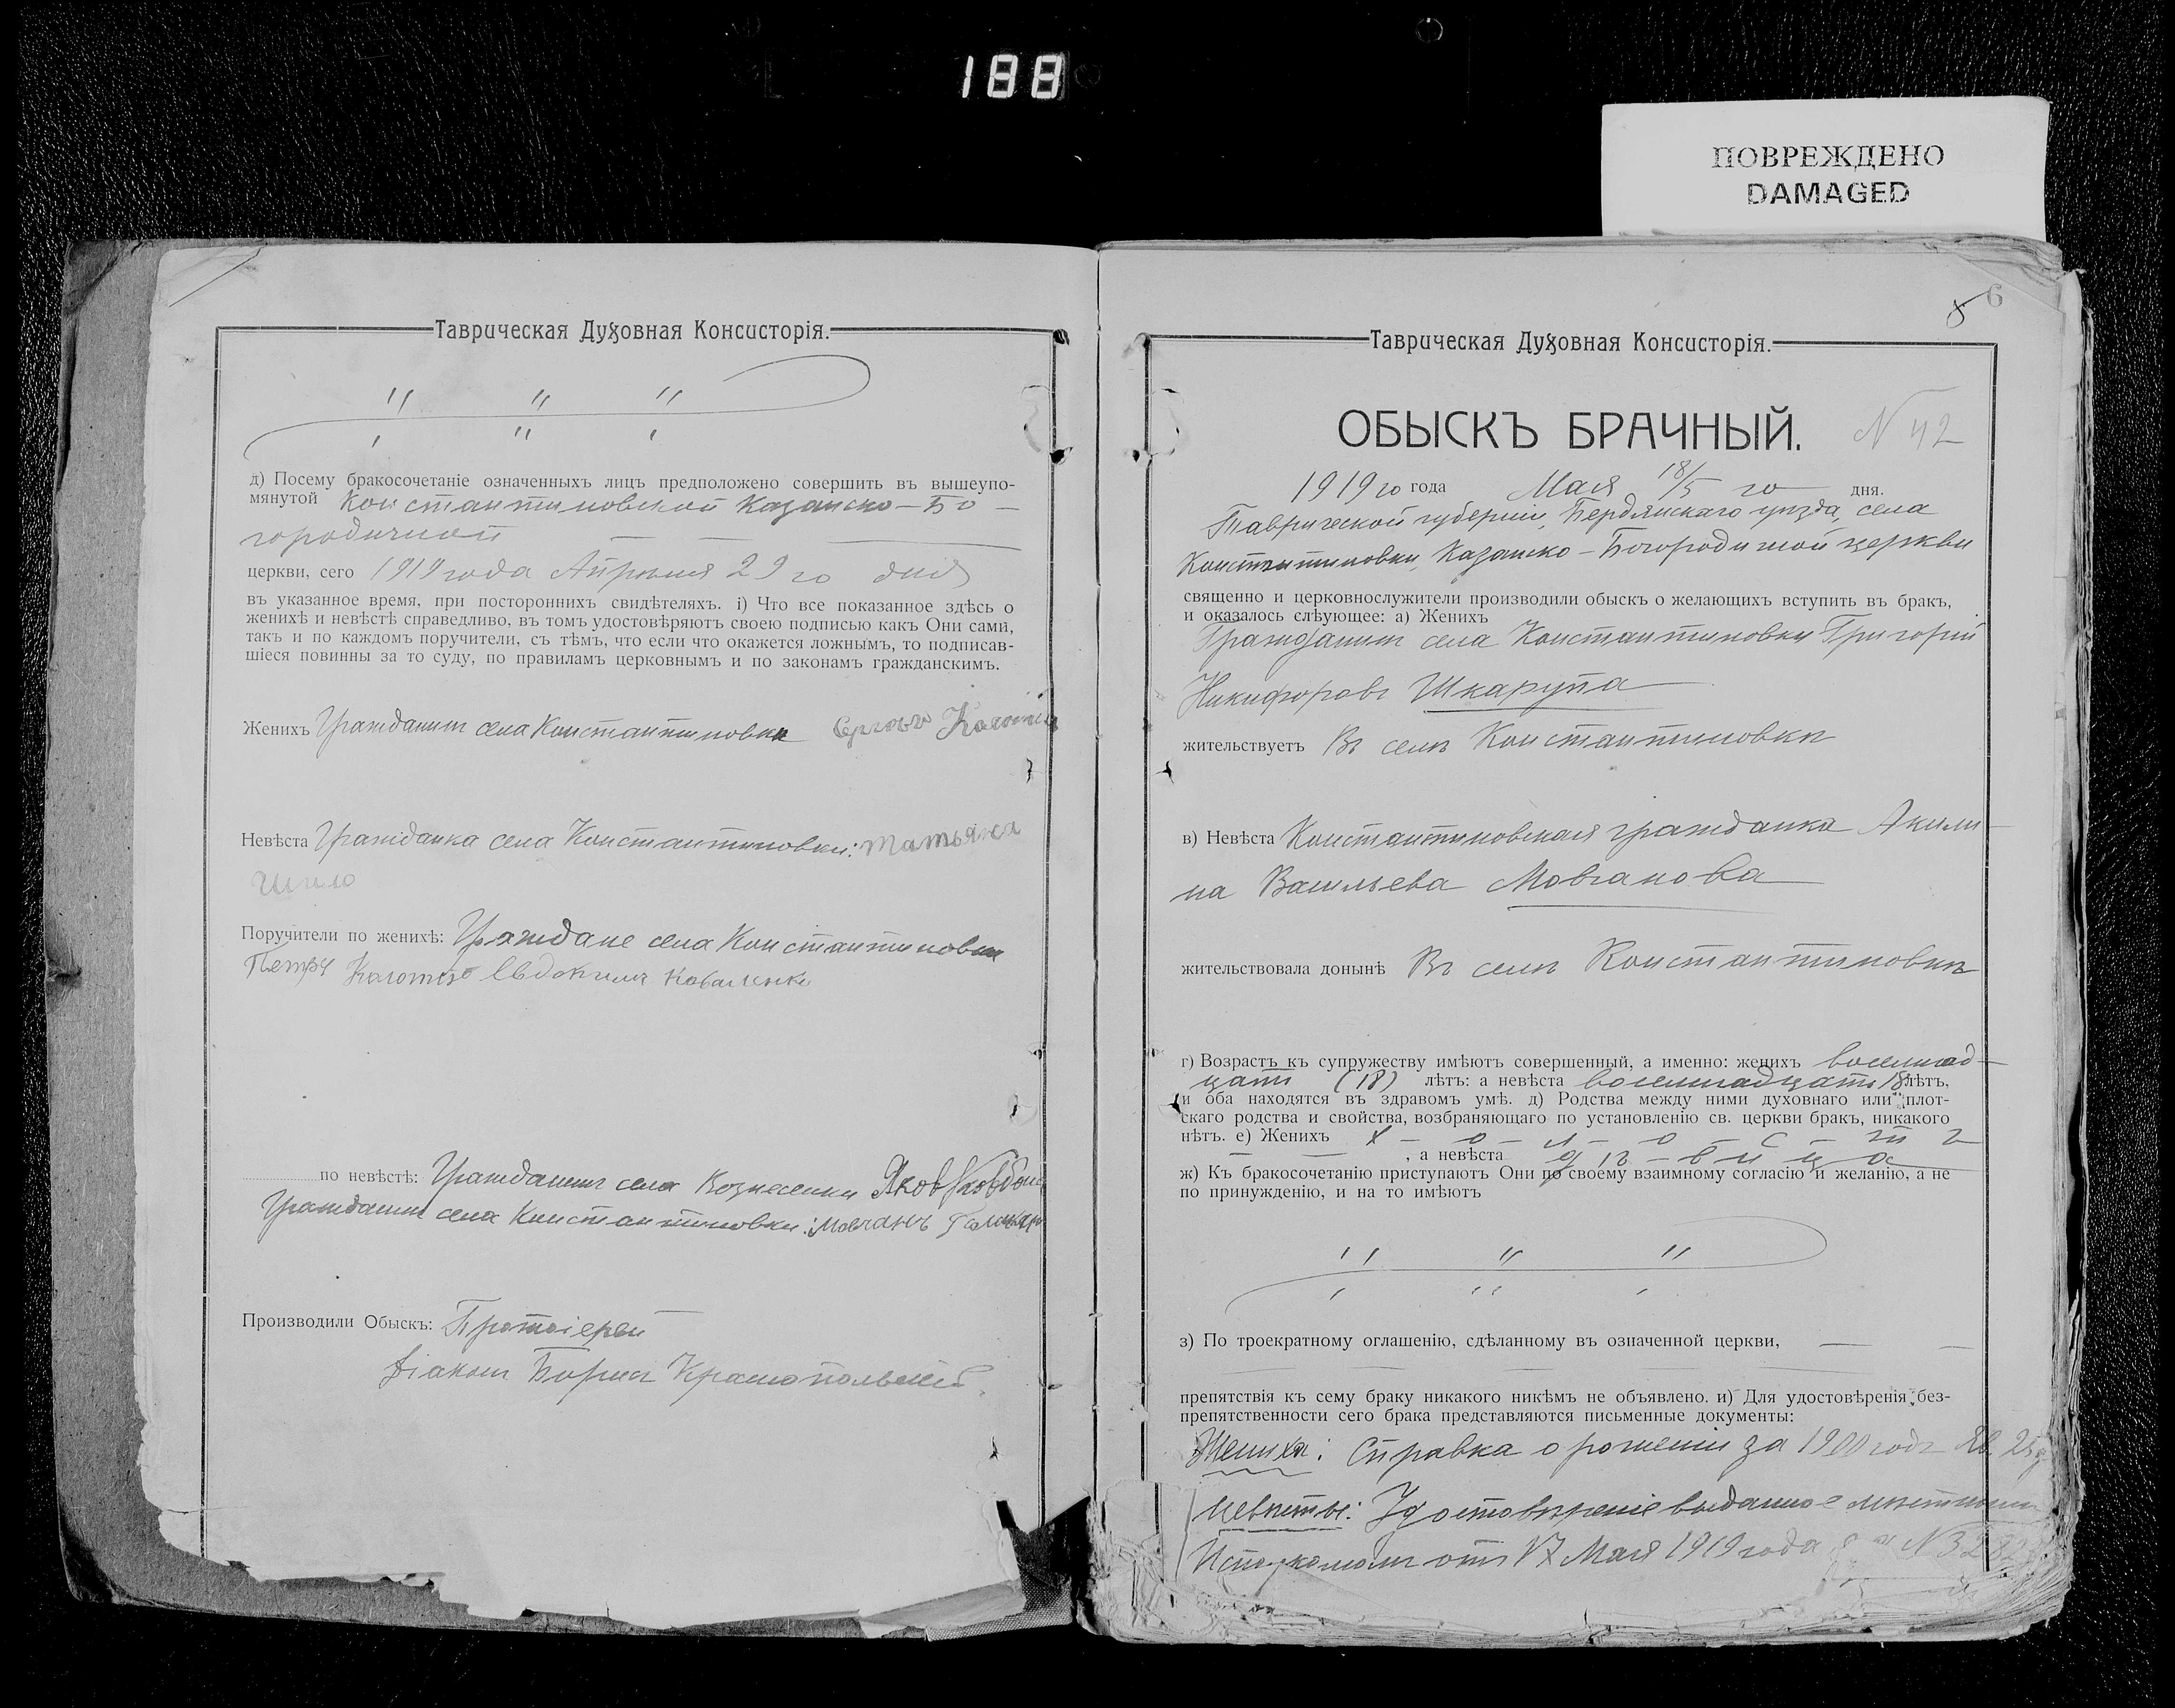 188
ПОВРЕЖДЕНО
DAMAGED
Таврическая Духовная Консисторія.
" " "
' " '
д) Посему бракосочетаніе означенныхъ лицъ предположено совершить въ вышеупо-
мянутой Константиновской Казанско-Бо-
городичной
церкви, сего 1919 года Апрѣля 29 го дня
въ указанное время, при постороннихъ свидѣтеляхъ. і) Что все показанное здѣсь о
женихѣ и невѣстѣ справедливо, въ томъ удостовѣряютъ своею подписью какъ Они сами,
такъ и по каждомъ поручители, съ тѣмъ, что если что окажется ложнымъ, то подписав-
шіеся повинны за то суду, по правиламъ церковнымъ и по законамъ гражданскимъ.
Женихъ Гражданинъ села Константиновки
Невѣста Гражданка села Константиновки: Татьяна
Шило
Поручители по женихѣ: Граждане села Константиновки
Петръ Евдокимъ Коваленко
по невѣстѣ: Гражданинъ села Вознесенки Яковъ
Гражданинъ села Константиновки: Мовчанъ
Производили Обыскъ: Протоіерей
Діаконъ Борисъ Краснопольскій.
Таврическая Духовная Консисторія.
6
ОБЫСКЪ БРАЧНЫЙ. N 42
1919 го года Мая 18/5 го дня.
Таврической губерніи, Бердянскаго уѣзда, села
Константиновки, Казанско-Богородичной церкви
священно и церковнослужители производили обыскъ о желающихъ вступить въ бракъ,
и оказалось слѣующее: а) Женихъ
Гражданинъ села Константиновки Григорій
Никифоровъ Шкарупа
жительствуетъ Въ селѣ Константиновкѣ
в) Невѣста Константиновская гражданка Акили-
на Васильева Мовчанова
жительствовала донынѣ Въ селѣ Константиновкѣ
г) Возрастъ къ супружеству имѣютъ совершенный, а именно: женихъ восемнад-
цати (18) лѣтъ: а невѣста восемнадцати 18 лѣтъ,
и оба находятся въ здравомъ умѣ. д) Родства между ними духовнаго или плот-
скаго родства и свойства, возбраняющаго по установленію св. церкви бракъ, никакого
нѣтъ. е) Женихъ х-о-л-о-с-т-ъ
, а невѣста дѣ-в-и-ц-а
ж) Къ бракосочетанію приступаютъ Они по своему взаимному согласію и желанію, а не
по принужденію, и на то имѣютъ
" " "
' " '
з) По троекратному оглашенію, сдѣланному въ означенной церкви,
препятствія къ сему браку никакого никѣмъ не объявлено. и) Для удостовѣренія без-
препятственности сего брака представляются письменные документы:
Жениха: Справка о рожденіи за 1900 годъ
Невѣсты: Удостовѣреніе выданное мѣстнымъ
Исполкомомъ отъ 17 Мая 1919 года